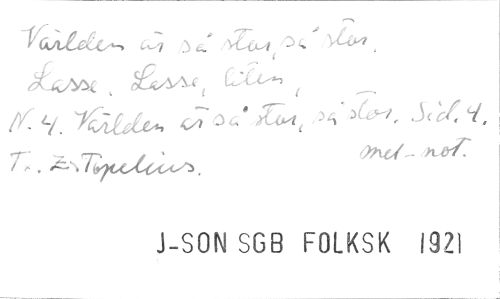 Världen är så stor, så stor,
Lasse, Lasse, liten,
N. 4. Världen är så stor, så stor. Sid. 4.
T.. Z. Topelius. mel-not.
J-SON SGB FOLKSK 1921